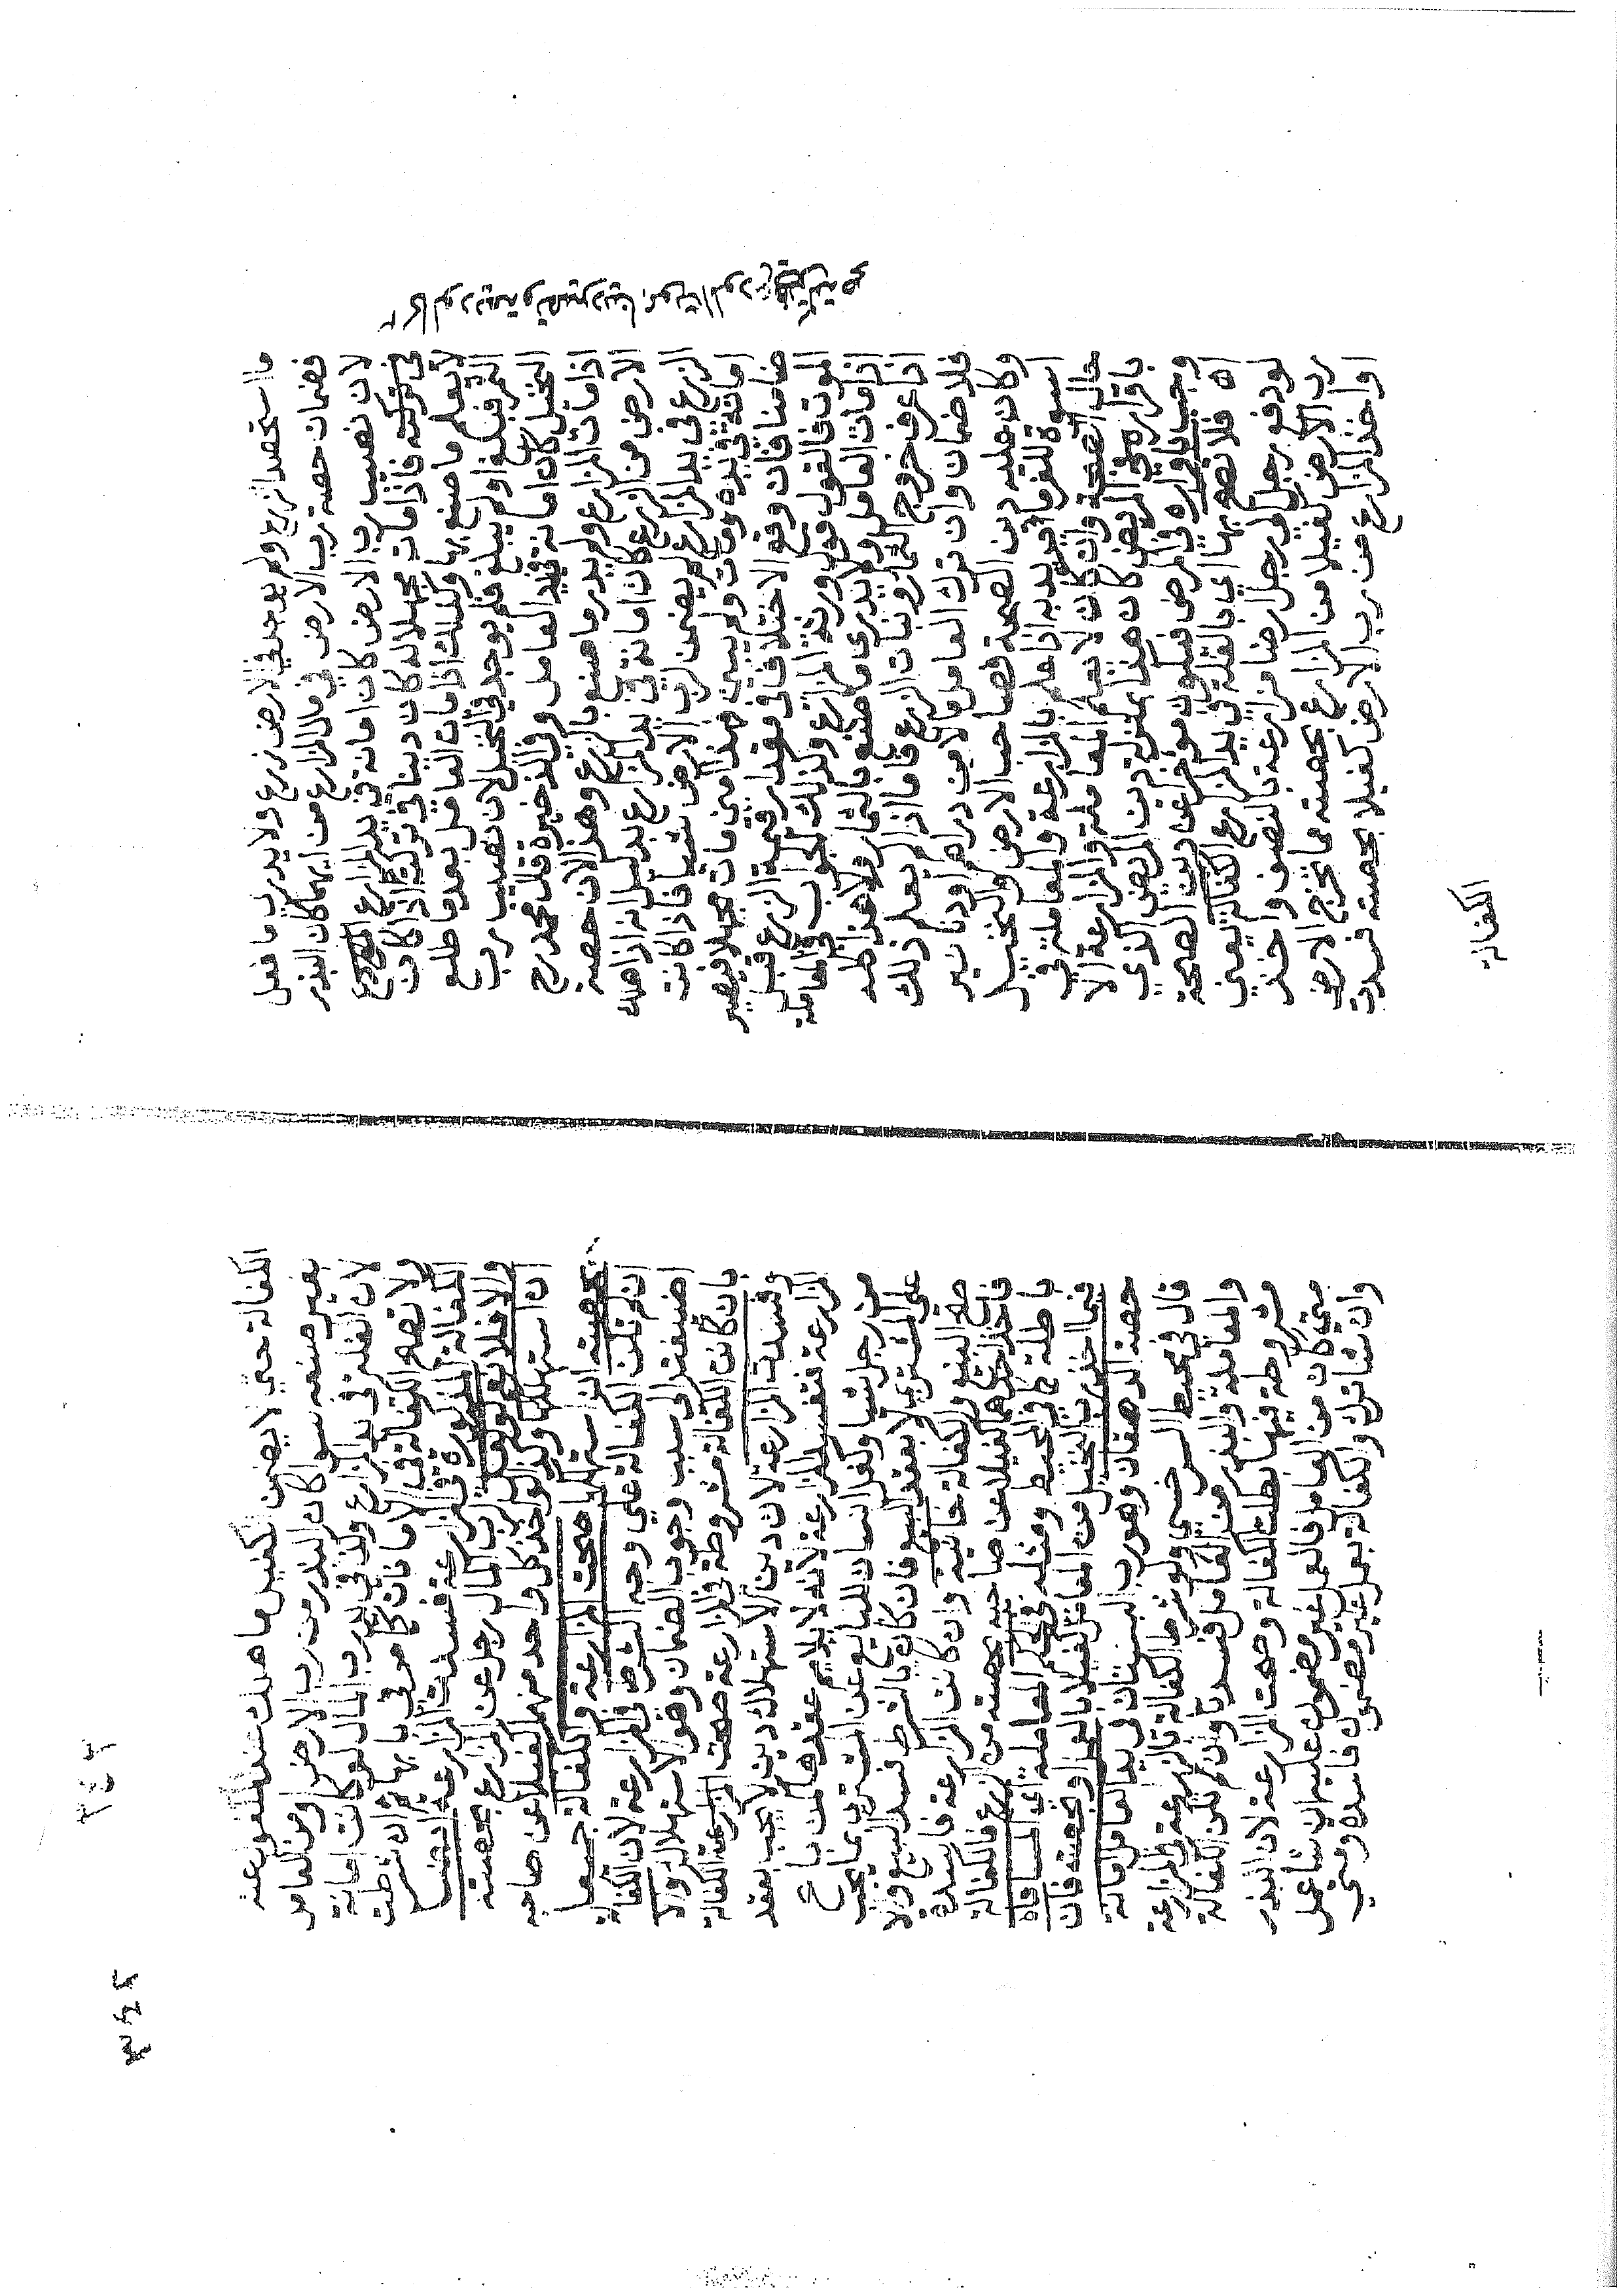 ما استحصد الزرع ولم يوجد في الارض زرع ولا يدرى ما فعل
فضمان حصة رب الارض في مال المزارع من ايهما كان البذر
لان نصيب رب الارض كان امانة في يد المزارع
في تركته فاذا مات مجهلا له كان دينا في تركته اذا كان
لا يعلم ما صنع بها وكذلك اذا مات العامل بعد ما طلع
الثمر فبلغ او لم يبلغ فلم يوجد في النخيل لان نصيب رب
النخيل كان امانة في يد العامل وفي الذخيرة قال محمد رح
اذا مات المزارع ولم يدر ما صنع بالزرع وهذا لان حصة
الارض من الزرع كان امانة في يد المزارع بدليل انه اذا هلك
الزرع في يد المزارع لم يضمن لرب الارض شيئا فاذا كانت
امانة في يده ومات ولم يبين هذا امين مات مجهلا فيصير
ضامنا فان وقع الاختلاف في مقدار قيمة الزرع قبل
الموت فالقول قول ورثة المزارع وكذلك الجواب في المعاملة
اذا مات العامل ولا يدرى ما صنع بالثمار هذا كله
اذا عرف خروج الثمار ونبات الزرع فاما اذا لم يعلم ذلك
فلا ضمان وان ترك العامل مالا من دراهم او دنانير
وكان عليه دين الصحة فصاحب الارض والنخيل
اسوة للغرماء يريد به اذا علم بالمزارعة والمعاملة في
حال الصحة وان كان لا يعلم المعاملة والمزارعة الا
باقراره في المرض كان هذا بمنزلة دين المريض الذي
وجب باقراره في المرض فيكون مؤخرا عن دين الصحة
اه فلا تصح بها اي بالغلة في يد المزارع الكفالة يعني
لو دفع رجل الى رجل ارضا مزارعة بالنصف واخذ
رب الارض كفيلا من المزارع بحصته مما تخرج الارض
او اخذ المزارع من رب الارض كفيلا بحصته فسدت
الكفالة
الكفالة حتى لا يضمن الكفيل ما هلك عند المكفول عنه
بغير صنعه سوا كان البذر من رب الارض او من العامل
لان الغلة في يد المزارع وكذا في يد رب المال لو كانت امانة
ولا تصح الكفالة في الامانات كما مر في بابها ثم ان شرطت
الكفالة المذكورة في المزارعة فسدت المزارعة ايضا
والا فلا رب المال رجل عن المزارع بحصته
ان استهلكها وكذا لو اخذ كل واحد منهما كفيلا عن صاحبه
بحصته ان استهلكها صحت المزارعة والكفالة جميعا
ان لم تكن الكفالة على وجه الشرط في المزارعة لان الكفالة
اضيفت الى سبب وجوب الضمان وهو الاستهلاك والا
بان كانت الكفالة مشروطة في المزارعة صحت الكفالة
وفسدت المزارعة لان دين الاستهلاك دين لا يجب بعقد
المزارعة فتفسد المزارعة لانه لا يلايم عقدها كمن باع
من رجل شيئا وكفل انسان للبايع عن المشتري بما يجب
على المشتري لا بعقد البيع فان كان بالشرط فسد البيع والا
صح البيع والكفالة خانية وان كانت المزارعة فاسدة
فاخذ احدهما كفيلا عن صاحبه بحصته من الزرع فالكفالة
باطلة كما في المحيط ومثله في حكم المعاملة اي المساقاة
فيما اخذ رب النخيل من العامل كفيلا بالعمل او بحصته فان
حصة الدهقان وهو رب البستان في يد العامل امانة
قال في محيط السرخسي ولو شرط الكفالة بالزرعة في المزارعة
والمعاملة والبذر من العامل فسدتا وان لم تكن الكفالة
مشروطة فيها بطلت الكفالة وصحت المزارعة لان البذر
متى كان من العامل فالعمل غير مضمون عليه ان شا عمل
وان شا ترك والكفالة بعمل غير مضمون فاسدة ومتى